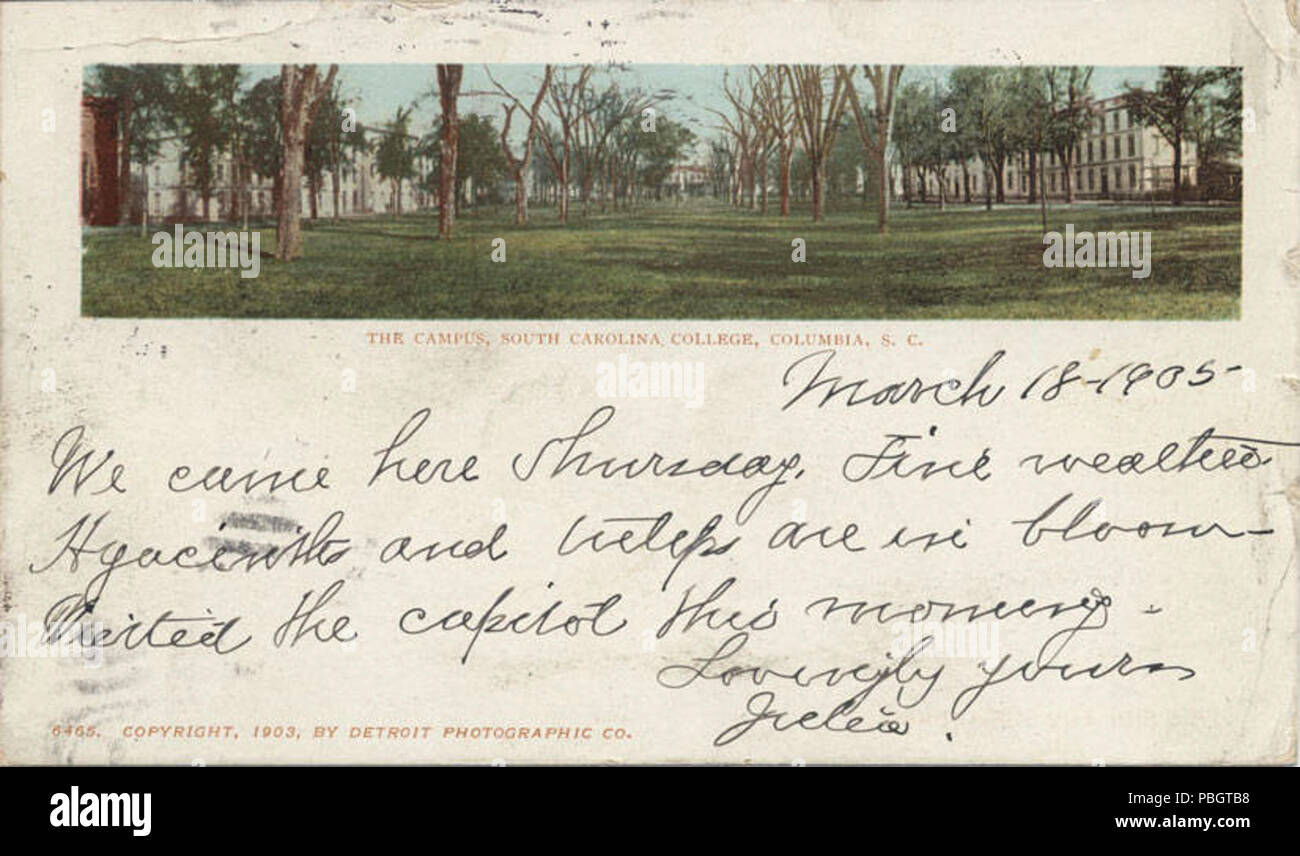 THE CAMPUS, SOUTH CAROLINA COLLEGE, COLUMBIA, S. C.
March 18-1905-
We came here Thursday. Fine weather
Hyacinths and tulips are in bloom-
Visited the capitol this morning.
Lovingly yours
6465. COPYRIGHT, 1903, BY DETROIT PHOTOGRAPHIC CO.
alamy
Image ID: PBGTB8
www.alamy.com